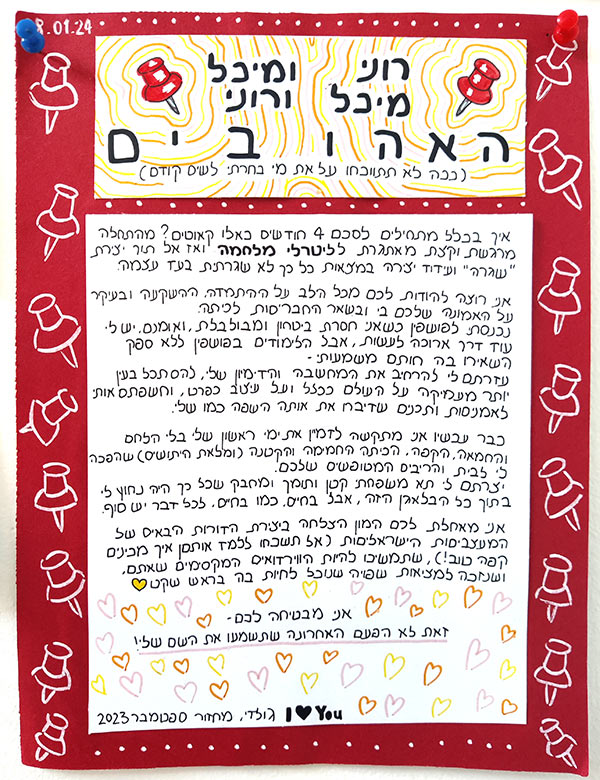 8.01.24
רוני ומיכל
מיכל ורוני
האהובים
(ככה לא תתווכחו על את מי בחרתי לשים קודם)
איך בכלל מתחילים לסכם 4 חודשים כאלו קאוטים? מהתחלה
מרגשת וקצת מאתגרת לליטרלי מלחמה ואז אל תוך יצירת
"שגרה" ועידוד יצירה במציאות כל כך לא שגרתית בעד עצמה.
אני רוצה להודות לכם מכל הלב על ההתמדה, ההשקעה ובעיקר
על האמונה שלכם בי ובשאר החבר׳יסות לכיתה.
נכנסתי לפושפין כשאני חסרת ביטחון ומבולבלת, ואומנם יש לי
עוד דרך ארוכה לעשות, אבל הלימודים בפושפין ללא ספק
השאירו בה חותם משמעותי-
עזרתם לי להרחיב את המחשבה והדימיון שלי, להסתכל בעין
יותר מעמיקה על העולם ככלל ועל עיצוב כפרט, וחשפתם אותי
לאמניסות ותכנים שדיברו את אותה השפה כמו שלי.
כבר עכשיו אני מתקשה לדמיין את ימי ראשון שלי בלי הלחם
והחמאה, הקפה, הכיתה החמימה והקטנה (ומלאת היתושים) שהפכה
לי לבית והריבים המטופשים שלכם.
יצרתם לי תא משפחתי קטן ותומך ומחבק שכל כך היה נחוץ לי
בתוך כל הבלאגן הזה, אבל בחיים, כמו בחיים, לכל דבר יש סוף.
אני מאחלת לכם המון הצלחה ביצירת הדורות הבאים של
המעצבימות הישראלימות (אל תשכחו ללמד אותםן איך מכינים
קפה טוב!), שתמשיכו להיות הווירדואים המקסימים שאתם,
ושנזכה למציאות שפויה שנוכל לחיות בה בראש שקט
אני מבטיחה לכם -
זאת לא הפעם האחרונה שתשמעו את השם שלי!
I ♥ You גולדי, מחזור ספטמבר 2023